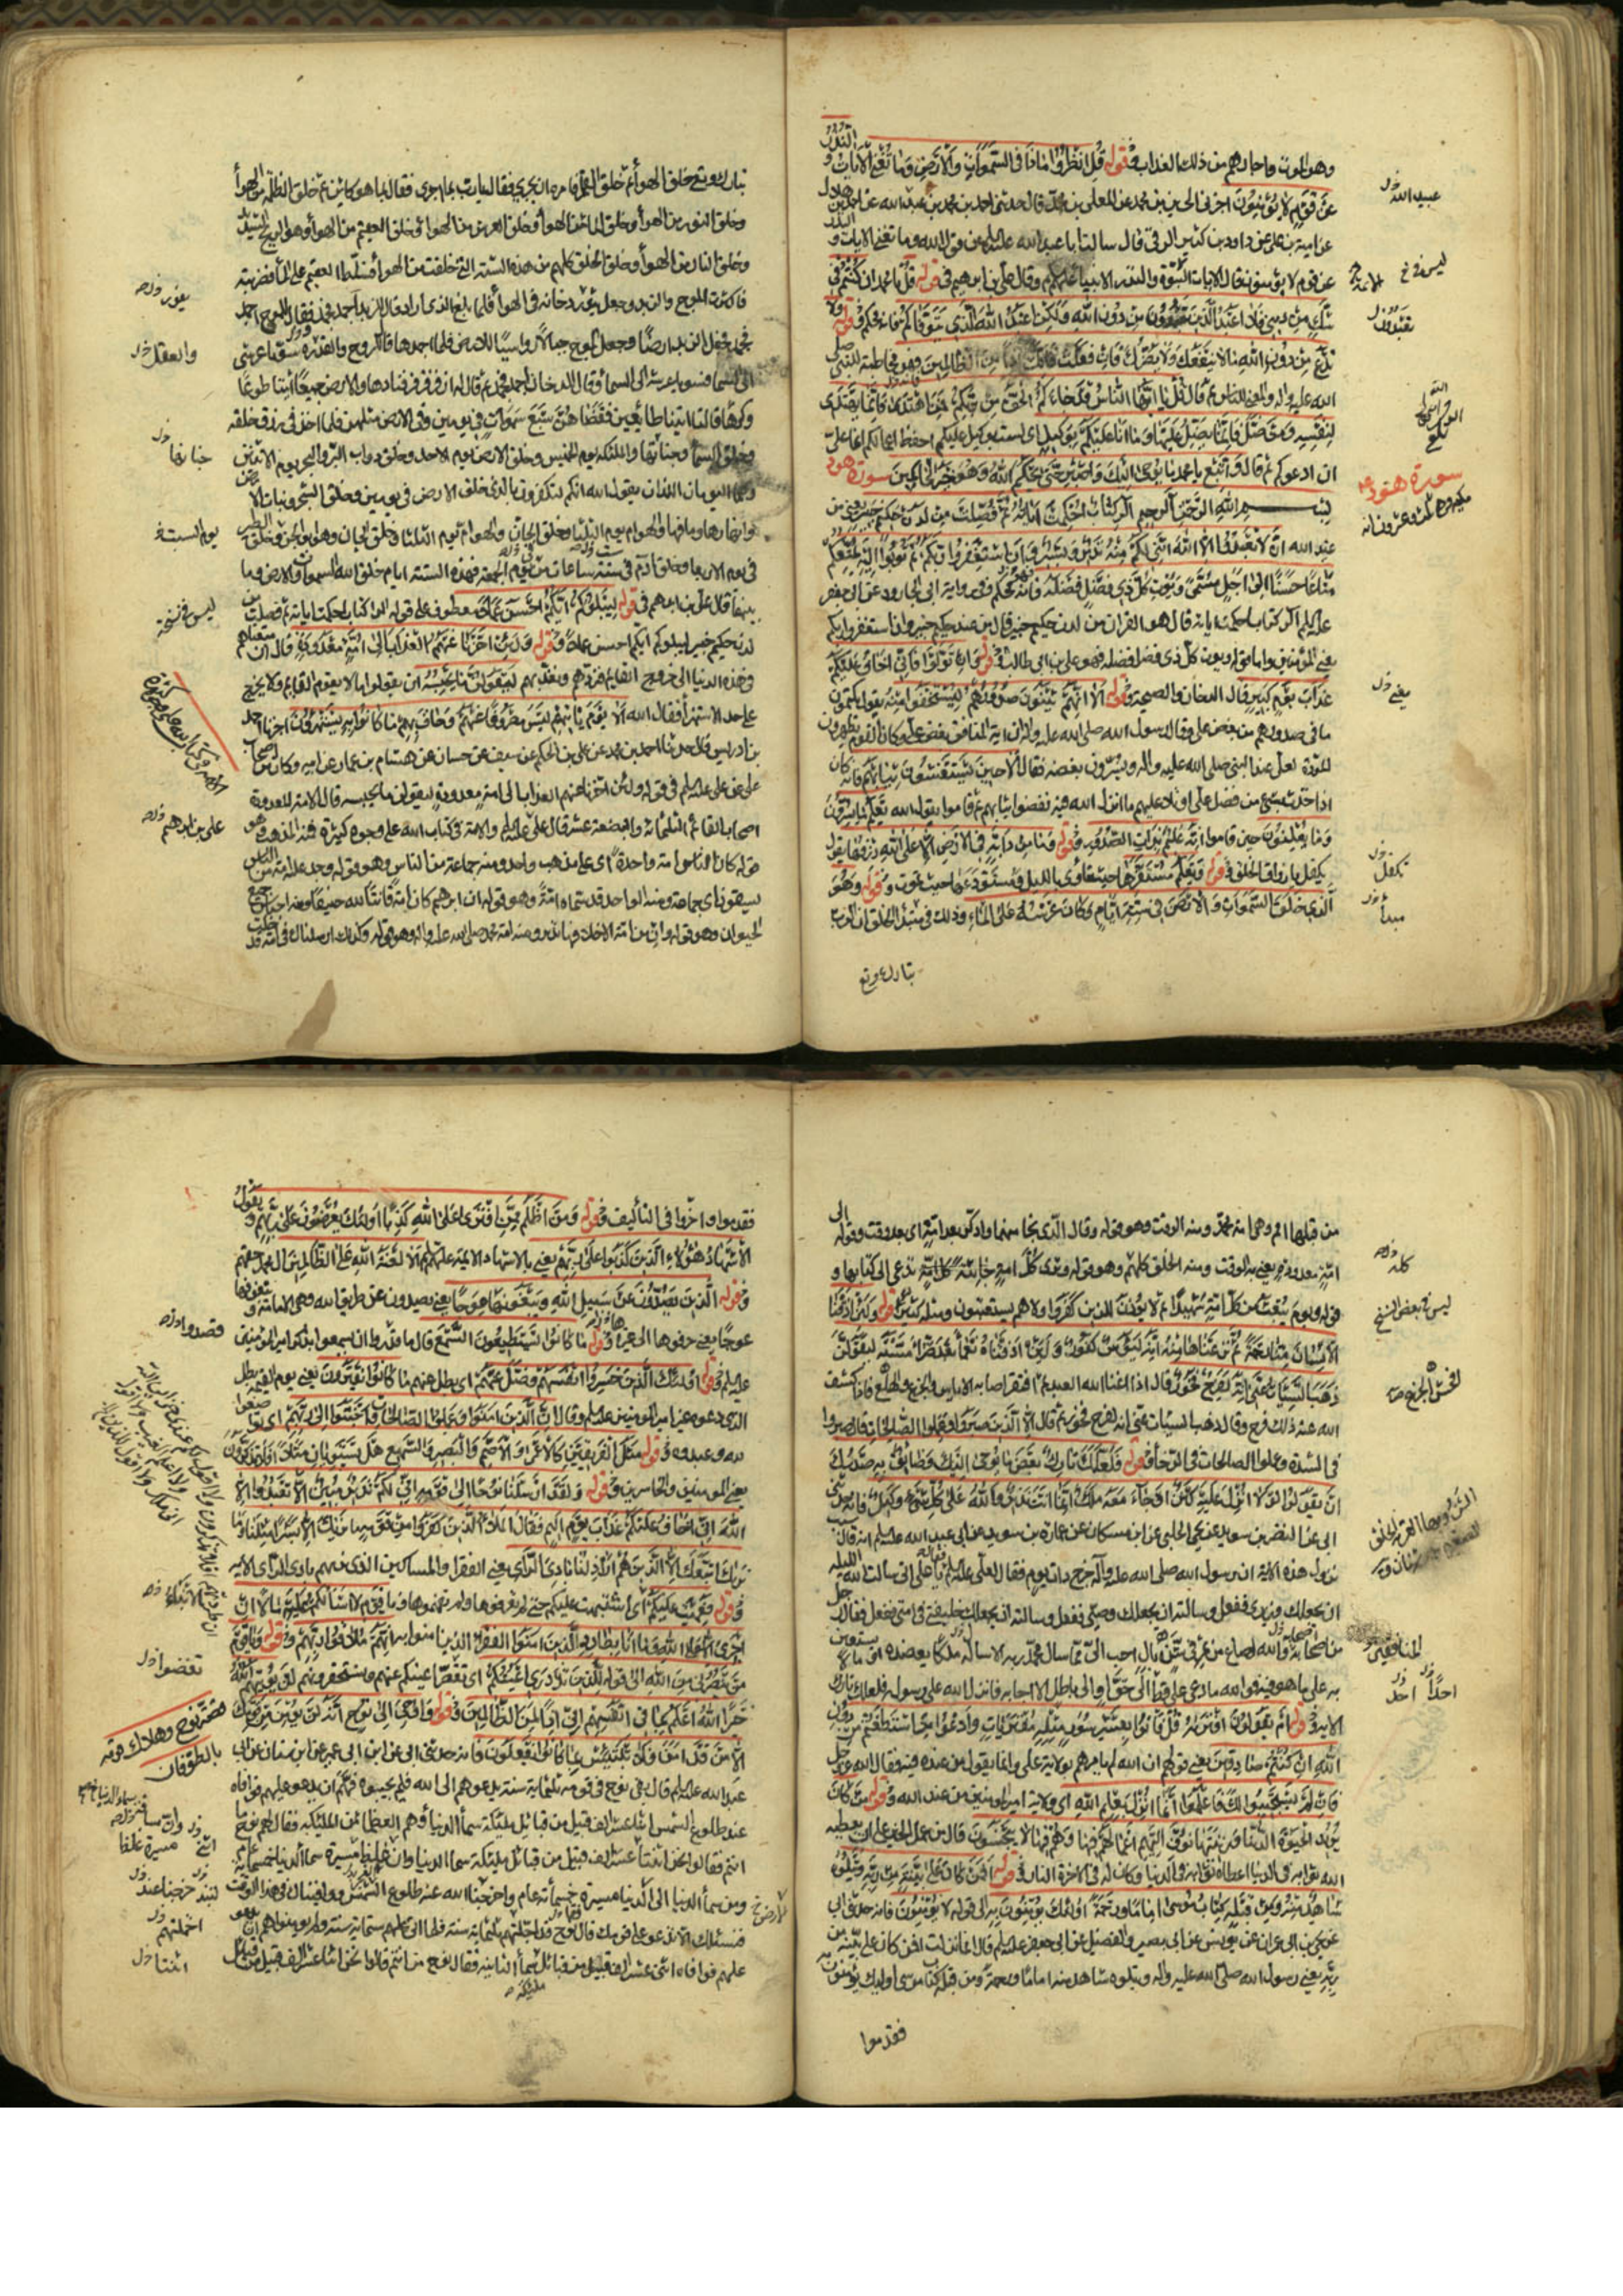 وهو الموت وما حل بهم من ذلك العذاب وقوله قل انظروا ماذا في السموات والارض وما تغني الآيات والنذر
عن قوم لا يؤمنون اخبرني الحسين بن محمد عن المعلى بن محمد قال حدثني احمد بن محمد بن عبد الله عن احمد بن هلال
عن امية بن علي عن داود بن كثير الرقي قال سالت ابا عبد الله عليه السلم عن قول الله وما تغني الايات والنذر
عن قوم لا يؤمنون قال الايات الائمة والنذر الانبياء عليهم وقال علي بن ابرهيم في قوله قل يا محمد ان كنتم في
شك من ديني فلا اعبد الذين تعبدون من دون الله ولكن اعبد الله الذي يتوفاكم فانه محكم وقوله ولا
تدع من دون الله ما لا ينفعك ولا يضرك فان فعلت فانك اذا من الظالمين فهو مخاطبة للنبي صلى
الله عليه واله والمعني للناس ثم قال قل يا ايها الناس قد جاءكم الحق من ربكم فمن اهتدى فانما يهتدي
لنفسه ومن ضل فانما يضل عليها وما انا عليكم بوكيل اي لست بوكيل عليكم احفظ اعمالكم انما علي
ان ادعوكم ثم قال واتبع يا محمد ما يوحى اليك واصبر حتى يحكم الله وهو خير الحاكمين سورة هود
بسم الله الرحمن الرحيم الر كتاب احكمت اياته ثم فصلت من لدن حكيم خبير يعني من
عند الله ان لا تعبدوا الا الله انني لكم منه نذير وبشير وان استغفروا ربكم ثم توبوا اليه يمتعكم
متاعا حسنا الى اجل مسمى ويؤت كل ذي فضل فضله فانه محكم وفي رواية ابي الجارود عن ابي جعفر
عليه السلم الر كتاب احكمت اياته قال هو القران من لدن حكيم خبير قال من عند حكيم خبير وان استغفروا ربكم
يعني المؤمنين واما قوله ويؤت كل ذي فضل فضله فهو علي بن ابي طالب وقوله وان تولوا فاني اخاف عليكم
عذاب يوم كبير قال الدخان والصيحة وقوله الا انهم يثنون صدورهم ليستخفوا منه يقول يكتمون
ما في صدورهم من بغض علي وقال رسول الله صلى الله عليه واله ان اية المنافق بغض علي وكان قوم يظهرون
المودة لعلي عند النبي صلى الله عليه واله ويسرون بغضه فقال الا حين يستغشون ثيابهم فانه كان
اذا حدث بشيء من فضل علي او تلا عليهم ما انزل الله فيه نفضوا ثيابهم ثم قاموا يقول الله يعلم ما يسرون
وما يعلنون حين قاموا انه عليم بذات الصدور وقوله وما من دابة في الارض الا على الله رزقها يقول
يكفل بارزاق الخلق قوله ويعلم مستقرها حيث تأوي بالليل ومستودعها حيث تموت وقوله وهو
الذي خلق السموات والارض في ستة ايام وكان عرشه على الماء وذلك في مبتدأ الخلق ان الرب
تبارك وتع
عبيد الله
سورة هود
يعني
تكفل
مبدأ
تبارك وتع خلق الهوأ ثم خلق القلم فامره ان يجري فقال يا رب بما اجري فقال بما هو كائن ثم خلق الظلمة من الهوأ
وخلق النور من الهوأ وخلق الماء من الهوأ وخلق العرش من الهوأ وخلق العقيم من الهوأ وهو الريح الشديد
وخلق النار من الهوأ وخلق الخلق كلهم من هذه الستة التي خلقت من الهوأ فسلط العقيم على الماء فضربته
فاكثرت الموج والزبد وجعل يثور دخانه في الهوأ فلما بلغ الذي اراد قال للزبد اجمد فجمد وقال للموج اجمد
فجمد فجعل الزبد ارضا وجعل الموج جبالا رواسي للارض فلما اجمدها قال للروح والقدرة سويا عرشي
الى السماء فسويا عرشه الى السماء وقال للدخان اجمد فجمد ثم قال له ازفر فزفر فناداها والارض جميعا ائتيا طوعا
وكرها قالتا اتينا طائعين فقضاهن سبع سموات في يومين ومن الارض مثلهن فلما اخذ في رزق خلقه
خلق السماء وجناتها والملئكة يوم الخميس وخلق الارض يوم الاحد وخلق دواب البر والبحر يوم الاثنين
وهما اليومان اللذان يقول الله انكم لتكفرون بالذي خلق الارض في يومين وخلق الشجر ونبات الارض
وانهارها وما فيها والهوام يوم الثلثا وخلق الجان وهو ابو الجن وخلق الطير
في يوم الاربعا وخلق ادم في ست ساعات من يوم الجمعة فهذه الستة ايام خلق الله السموات والارض وما
بينهما قال علي بن ابرهيم في قوله ليبلوكم ايكم احسن عملا معطوف على قوله الر كتاب احكمت اياته ثم فصلت من
لدن حكيم خبير ليبلوكم ايكم احسن عملا وقوله ولئن اخرنا عنهم العذاب الى امة معدودة قال ان متعناهم
في هذه الدنيا الى خروج القايم فنردهم ونعذبهم ليقولن ما يحبسه اي يقولوا اما لا يقوم القايم ولا يخرج
على حد الاستهزأ فقال الله الا يوم ياتيهم ليس مصروفا عنهم وحاق بهم ما كانوا به يستهزؤن اخبرنا احمد
بن ادريس قال حدثنا احمد بن محمد عن علي بن الحكم عن سيف عن حسان عن هشام بن عمار عن ابيه وكان من اصحاب
علي عن علي عليه السلم في قوله ولئن اخرنا عنهم العذاب الى امة معدودة ليقولن ما يحبسه قال الامة المعدودة
اصحاب القائم الثلثمائة والبضعة عشر قال علي بن ابرهيم والامة في كتاب الله على وجوه كثيرة فمنه المذهب وهو
قوله كان الناس امة واحدة اي على مذهب واحد ومنه جماعة من الناس وهو قوله وجد عليه امة من الناس
يسقون اي جماعة ومنه الواحد قد سماه امة وهو قوله ان ابرهيم كان امة قانتا لله حنيفا ومنه اجناس جميع
الحيوان وهو قوله وان من امة الا خلا فيها نذير ومنه امة محمد صلى الله عليه واله وهو قوله وكذلك ارسلناك في امة قد خلت
والعقل
يوم السبت
ليس في نسخة
علي بن ابرهيم
من قبلها امم وهي امة محمد ومنه الوقت وهو قوله وقال الذي نجا منهما وادكر بعد امة اي بعد وقت وقوله الى
امة معدودة يعني به الوقت ومنه الخلق كلهم وهو قوله وترى كل امة جاثية كل امة تدعى الى كتابها و
قوله ويوم نبعث من كل امة شهيدا ثم لا يؤذن للذين كفروا ولا هم يستعتبون ومثله كثير وقوله ولئن اذقنا
الانسان منا رحمة ثم نزعناها منه انه ليؤس كفور ولئن اذقناه نعماء بعد ضراء مسته ليقولن
ذهب السيئات عني انه لفرح فخور قال اذا اغنا الله العبد ثم افتقر اصابه الاياس والجزع والهلع فاذا كشف
الله عنه ذلك فرح وقال ذهب السيئات عني انه لفرح فخور ثم قال الا الذين صبروا وعملوا الصالحات قال صبروا
في الشدة وعملوا الصالحات في الرخأ وقوله فلعلك تارك بعض ما يوحى اليك وضائق به صدرك
ان يقولوا لولا انزل عليه كنز او جاء معه ملك انما انت نذير والله على كل شيء وكيل فانه حدثني
ابي عن النضر بن سويد عن يحيى الحلبي عن ابن مسكان عن عمارة بن سويد عن ابي عبد الله عليه السلم انه قال سبب
نزول هذه الاية ان رسول الله صلى الله عليه وآله خرج ذات يوم فقال لعلي عليه السلم يا علي اني سالت الله الليلة
ان يجعلك وزيري ففعل وسالته ان يجعلك وصيي ففعل وسالته ان يجعلك خليفتي في امتي ففعل فقال رجل
من اصحابه والله لصاع من تمر في شن بال احب الي مما سال محمد ربه الا ساله ملكا يعضده او مالا يستعين
به على ما هو فيه فوالله ما دعا عليا قط الى حق او الى باطل الا اجابه فانزل الله على رسوله فلعلك تارك
الاية وقوله ام يقولون افتريه قل فاتوا بعشر سور مثله مفتريات وادعوا من استطعتم من دون
الله ان كنتم صادقين يعني قولهم ان الله لم يامرهم بولاية علي وانما يقول من عنده فيه فقال الله عز وجل
فان لم يستجيبوا لك فاعلموا انما انزل بعلم الله اي ولاية امير المؤمنين من عند الله وقوله من كان
يريد الحيوة الدنيا وزينتها نوف اليهم اعمالهم فيها وهم فيها لا يبخسون قال من عمل الخير على ان يعطيه
الله ثوابه في الدنيا اعطاه ثوابه في الدنيا وكان له في الاخرة النار وقوله افمن كان على بينة من ربه ويتلوه
شاهد منه ومن قبله كتاب موسى اماما ورحمة اولئك يؤمنون به الى قوله لا يؤمنون فانه حدثني ابي
عن يحيى بن ابي عمران عن يونس عن ابي بصير والفضيل عن ابي جعفر عليه السلم قال انما نزلت افمن كان على بينة من
ربه يعني رسول الله صلى الله عليه واله ويتلوه شاهد منه اماما ورحمة ومن قبله كتاب موسى اولئك يؤمنون به
فقدموا
ليس في بعض النسخ
احدا
فقدموا واخروا في التأليف وقوله ومن اظلم ممن افترى على الله كذبا اولئك يعرضون على ربهم ويقول
الاشهاد هؤلاء الذين كذبوا على ربهم يعني بالاشهاد الايمة عليهم السلم الا لعنة الله على الظالمين آل محمد حقهم
وقوله الذين يصدون عن سبيل الله ويبغونها عوجا يعني يصدون عن طريق الله وهي الامامة ويبغونها
عوجا يعني حرفوها الى غيرها وقوله ما كانوا يستطيعون السمع قال ما قدروا ان يسمعوا بذكر امير المؤمنين
عليه السلم وقوله اولئك الذين خسروا انفسهم وضل عنهم اي بطل عنهم ما كانوا يفترون يعني يوم القيمة بطل
الذي دعوه غير امير المؤمنين عليه السلم وقال ان الذين امنوا وعملوا الصالحات واخبتوا الى ربهم اي تواضعوا
لله وعبدوه وقوله مثل الفريقين كالاعمى والاصم والبصير والسميع هل يستويان مثلا افلا تذكرون
يعني المؤمنين والخاسرين وقوله ولقد ارسلنا نوحا الى قومه اني لكم نذير مبين ان لا تعبدوا الا
الله اني اخاف عليكم عذاب يوم اليم فقال الملأ الذين كفروا من قومه ما نريك الا بشرا مثلنا وما
نريك اتبعك الا الذين هم اراذلنا بادي الرأي يعني الفقراء والمساكين الذين نريهم بادي الرأي الاية
وقوله فعميت عليكم اي اشتبهت عليكم حتى لم تعرفوها ولم تفهموها ويا قوم لا اسألكم عليه مالا ان
اجري الا على الله وما انا بطارد الذين امنوا الفقراء الذين امنوا به انهم ملاقوا ربهم وقوله ويا قوم
من ينصرني من الله الى قوله للذين تزدري اعينكم اي تقصر اعينكم عنهم وتستحقرونهم لن يؤتيهم الله
خيرا الله اعلم بما في انفسهم اني اذا لمن الظالمين وقوله واوحي الى نوح انه لن يؤمن من قومك
الا من قد امن فلا تبتئس بما كانوا يفعلون فانه حدثني ابي عن ابن ابي عمير عن ابن سنان عن ابي
عبد الله عليه السلم قال بقي نوح في قومه ثلثمائة سنة يدعوهم الى الله فلم يجيبوه فهم ان يدعو عليهم فوافاه
عند طلوع الشمس اثنا عشر الف قبيل من قبائل ملئكة سماء الدنيا وهم العظماء من الملئكة فقال لهم نوح ما
انتم فقالوا نحن اثنا عشر الف قبيل من قبائل ملئكة سماء الدنيا وان غلظ مسيرة سماء الدنيا خمسمائة عام
ومن سماء الدنيا الى الدنيا مسيرة خمسمأة عام وخرجنا عند طلوع الشمس ووافيناك في هذا الوقت
فنسئلك الا تدعو على قومك قال نوح قد اجلتهم ثلثمائة سنة فلما اتى عليهم ستمائة سنة ولم يؤمنوا هم ان يدعو
عليهم فوافاه اثنى عشر الف قبيل من قبائل سماء الثانية فقال نوح من انتم قالوا نحن اثنا عشر الف قبيل من قبائل
قصة نوح وهلاك قومه
بالطوفان